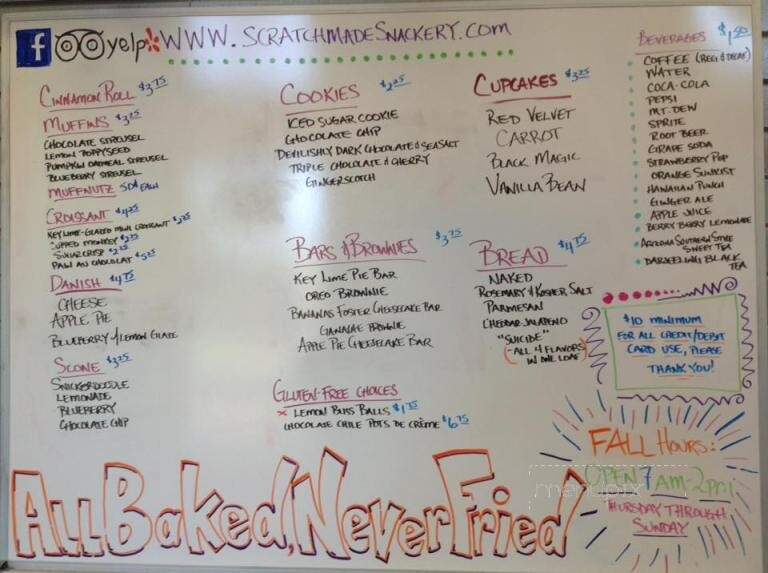 f yelp WWW.SCRATCHMADESNACKERY.COM
CINNAMON ROLL $3.75
MUFFINS $3.25
CHOCOLATE STREUSEL
LEMON POPPYSEED
PUMPKIN OATMEAL STREUSEL
BLUEBERRY STREUSEL
MUFFNUTZ 50¢ EACH
CROISSANT $4.25
KEY LIME-GLAZED MINI CROISSANT
CUPPED MONKEY $2.75
SUGAR CRISP
PAIN AU CHOCOLAT $5.25
DANISH $4.75
CHEESE
APPLE PIE
BLUEBERRY W/ LEMON GLAZE
SCONE $3.25
SNICKERDOODLE
LEMONADE
BLUEBERRY
CHOCOLATE CHIP
COOKIES $2.25
ICED SUGAR COOKIE
CHOCOLATE CHIP
DEVILISHLY DARK CHOCOLATE & SEA SALT
TRIPLE CHOCOLATE & CHERRY
GINGERSCOTCH
BARS & BROWNIES $3.75
KEY LIME PIE BAR
OREO BROWNIE
BANANAS FOSTER CHEESECAKE BAR
GANACHE BROWNIE
APPLE PIE CHEESECAKE BAR
GLUTEN-FREE CHOICES
x LEMON BUTS BALLS $1.75
CHOCOLATE CHILE POTS DE CRÈME $6.75
CUPCAKES $3.25
RED VELVET
CARROT
BLACK MAGIC
VANILLA BEAN
BREAD $4.75
NAKED
ROSEMARY & KOSHER SALT
PARMESAN
CHEDDAR JALAPENO
"SUICIDE"
(-ALL 4 FLAVORS
IN ONE LOAF)
BEVERAGES $1.50
COFFEE (REG & DECAF)
WATER
COCA-COLA
PEPSI
MT. DEW
SPRITE
ROOT BEER
GRAPE SODA
STRAWBERRY POP
ORANGE SUNKIST
HAWAIIAN PUNCH
GINGER ALE
APPLE JUICE
BERRY BERRY LEMONADE
ARIZONA SOUTHERN STYLE
SWEET TEA
DARJEELING BLACK
TEA
$10 MINIMUM
FOR ALL CREDIT/DEBIT
CARD USE, PLEASE
THANK YOU!
FALL HOURS:
OPEN 7AM-2PM
THURSDAY THROUGH
SUNDAY
menupix
ALL BAKED, NEVER FRIED